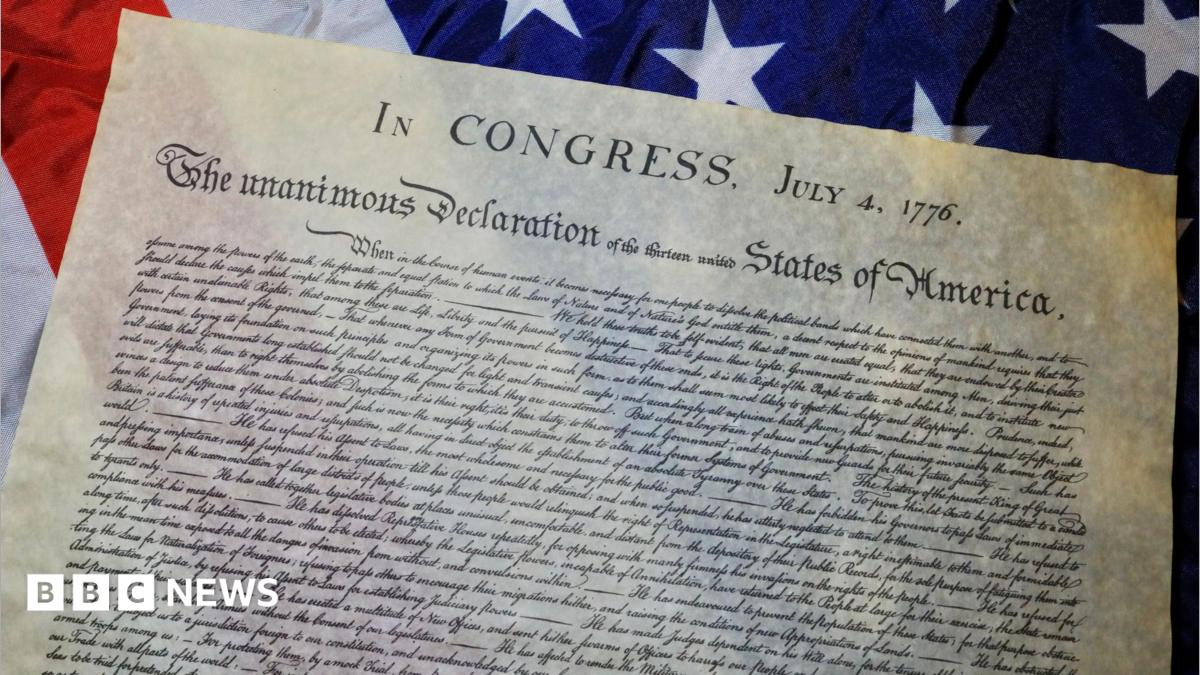 In CONGRESS, July 4, 1776.
The unanimous Declaration of the thirteen united States of America,
When in the Course of human events, it becomes necessary for one people to dissolve the political bands which have connected them with another, and to
assume among the powers of the earth, the separate and equal station to which the Laws of Nature and of Nature's God entitle them, a decent respect to the opinions of mankind requires that they
should declare the causes which impel them to the separation. — We hold these truths to be self-evident, that all men are created equal, that they are endowed by their Creator
with certain unalienable Rights, that among these are Life, Liberty and the pursuit of Happiness. — That to secure these rights, Governments are instituted among Men, deriving their just
powers from the consent of the governed, — That whenever any Form of Government becomes destructive of these ends, it is the Right of the People to alter or to abolish it, and to institute new
Government, laying its foundation on such principles and organizing its powers in such form, as to them shall seem most likely to effect their Safety and Happiness. Prudence, indeed,
will dictate that Governments long established should not be changed for light and transient causes; and accordingly all experience hath shewn, that mankind are more disposed to suffer, while
evils are sufferable, than to right themselves by abolishing the forms to which they are accustomed. But when a long train of abuses and usurpations, pursuing invariably the same Object
evinces a design to reduce them under absolute Despotism, it is their right, it is their duty, to throw off such Government, and to provide new Guards for their future security. — Such has
been the patient sufferance of these Colonies; and such is now the necessity which constrains them to alter their former Systems of Government. The history of the present King of Great
Britain is a history of repeated injuries and usurpations, all having in direct object the establishment of an absolute Tyranny over these States. To prove this, let Facts be submitted to a candid
world. — He has refused his Assent to Laws, the most wholesome and necessary for the public good. — He has forbidden his Governors to pass Laws of immediate
and pressing importance, unless suspended in their operation till his Assent should be obtained; and when so suspended, he has utterly neglected to attend to them. — He has refused to
pass other Laws for the accommodation of large districts of people, unless those people would relinquish the right of Representation in the Legislature, a right inestimable to them and formidable
to tyrants only. — He has called together legislative bodies at places unusual, uncomfortable, and distant from the depository of their Public Records, for the sole purpose of fatiguing them into
compliance with his measures. — He has dissolved Representative Houses repeatedly, for opposing with manly firmness his invasions on the rights of the people. — He has refused for
along time, after such dissolutions, to cause others to be elected; whereby the Legislative powers, incapable of Annihilation, have returned to the People at large for their exercise; the State remain
ing in the mean time exposed to all the dangers of invasion from without, and convulsions within. — He has endeavoured to prevent the population of these States; for that purpose obstruc
ting the Laws for Naturalization of Foreigners; refusing to pass others to encourage their migrations hither, and raising the conditions of new Appropriations of Lands. — He has obstructed
Administration of Justice, by refusing his Assent to Laws for establishing Judiciary powers. — He has made Judges dependent on his Will alone, for the tenure
and payment He has erected a multitude of New Offices, and sent hither swarms of Officers to harrass our People
without the Consent of our legislatures. — He has affected to render the Military
us to a jurisdiction foreign to our constitution, and unacknowledged by our
armed troops among us: — For protecting them, by a mock Trial,
our Trade with all parts of the world: — For
BBC NEWS